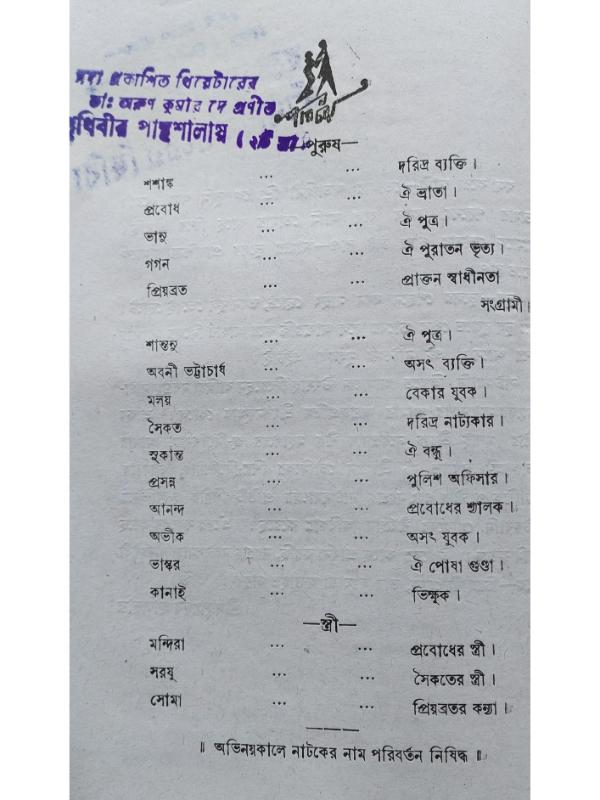 সদ্য প্রকাশিত থিয়েটারের
ডাঃ অরুণ কুমার দে প্রণীত
পৃথিবীর পান্থশালায় (২টি স্ত্রী
—পুরুষ—
শশাঙ্ক ... ... দরিদ্র ব্যক্তি।
প্রবোধ ... ... ঐ ভ্রাতা।
ভানু ... ... ঐ পুত্র।
গগন ... ... ঐ পুরাতন ভৃত্য।
প্রিয়ব্রত ... ... প্রাক্তন স্বাধীনতা
সংগ্রামী।
শান্তনু ... ... ঐ পুত্র।
অবনী ভট্টাচার্য ... ... অসৎ ব্যক্তি।
মলয় ... ... বেকার যুবক।
সৈকত ... ... দরিদ্র নাট্যকার।
সুকান্ত ... ... ঐ বন্ধু।
প্রসন্ন ... ... পুলিশ অফিসার।
আনন্দ ... ... প্রবোধের শ্যালক।
অভীক ... ... অসৎ যুবক।
ভাস্কর ... ... ঐ পোষা গুণ্ডা।
কানাই ... ... ভিক্ষুক।
—স্ত্রী—
মন্দিরা ... ... প্রবোধের স্ত্রী।
সরযূ ... ... সৈকতের স্ত্রী।
সোমা ... ... প্রিয়ব্রতর কন্যা।
॥ অভিনয়কালে নাটকের নাম পরিবর্তন নিষিদ্ধ ॥